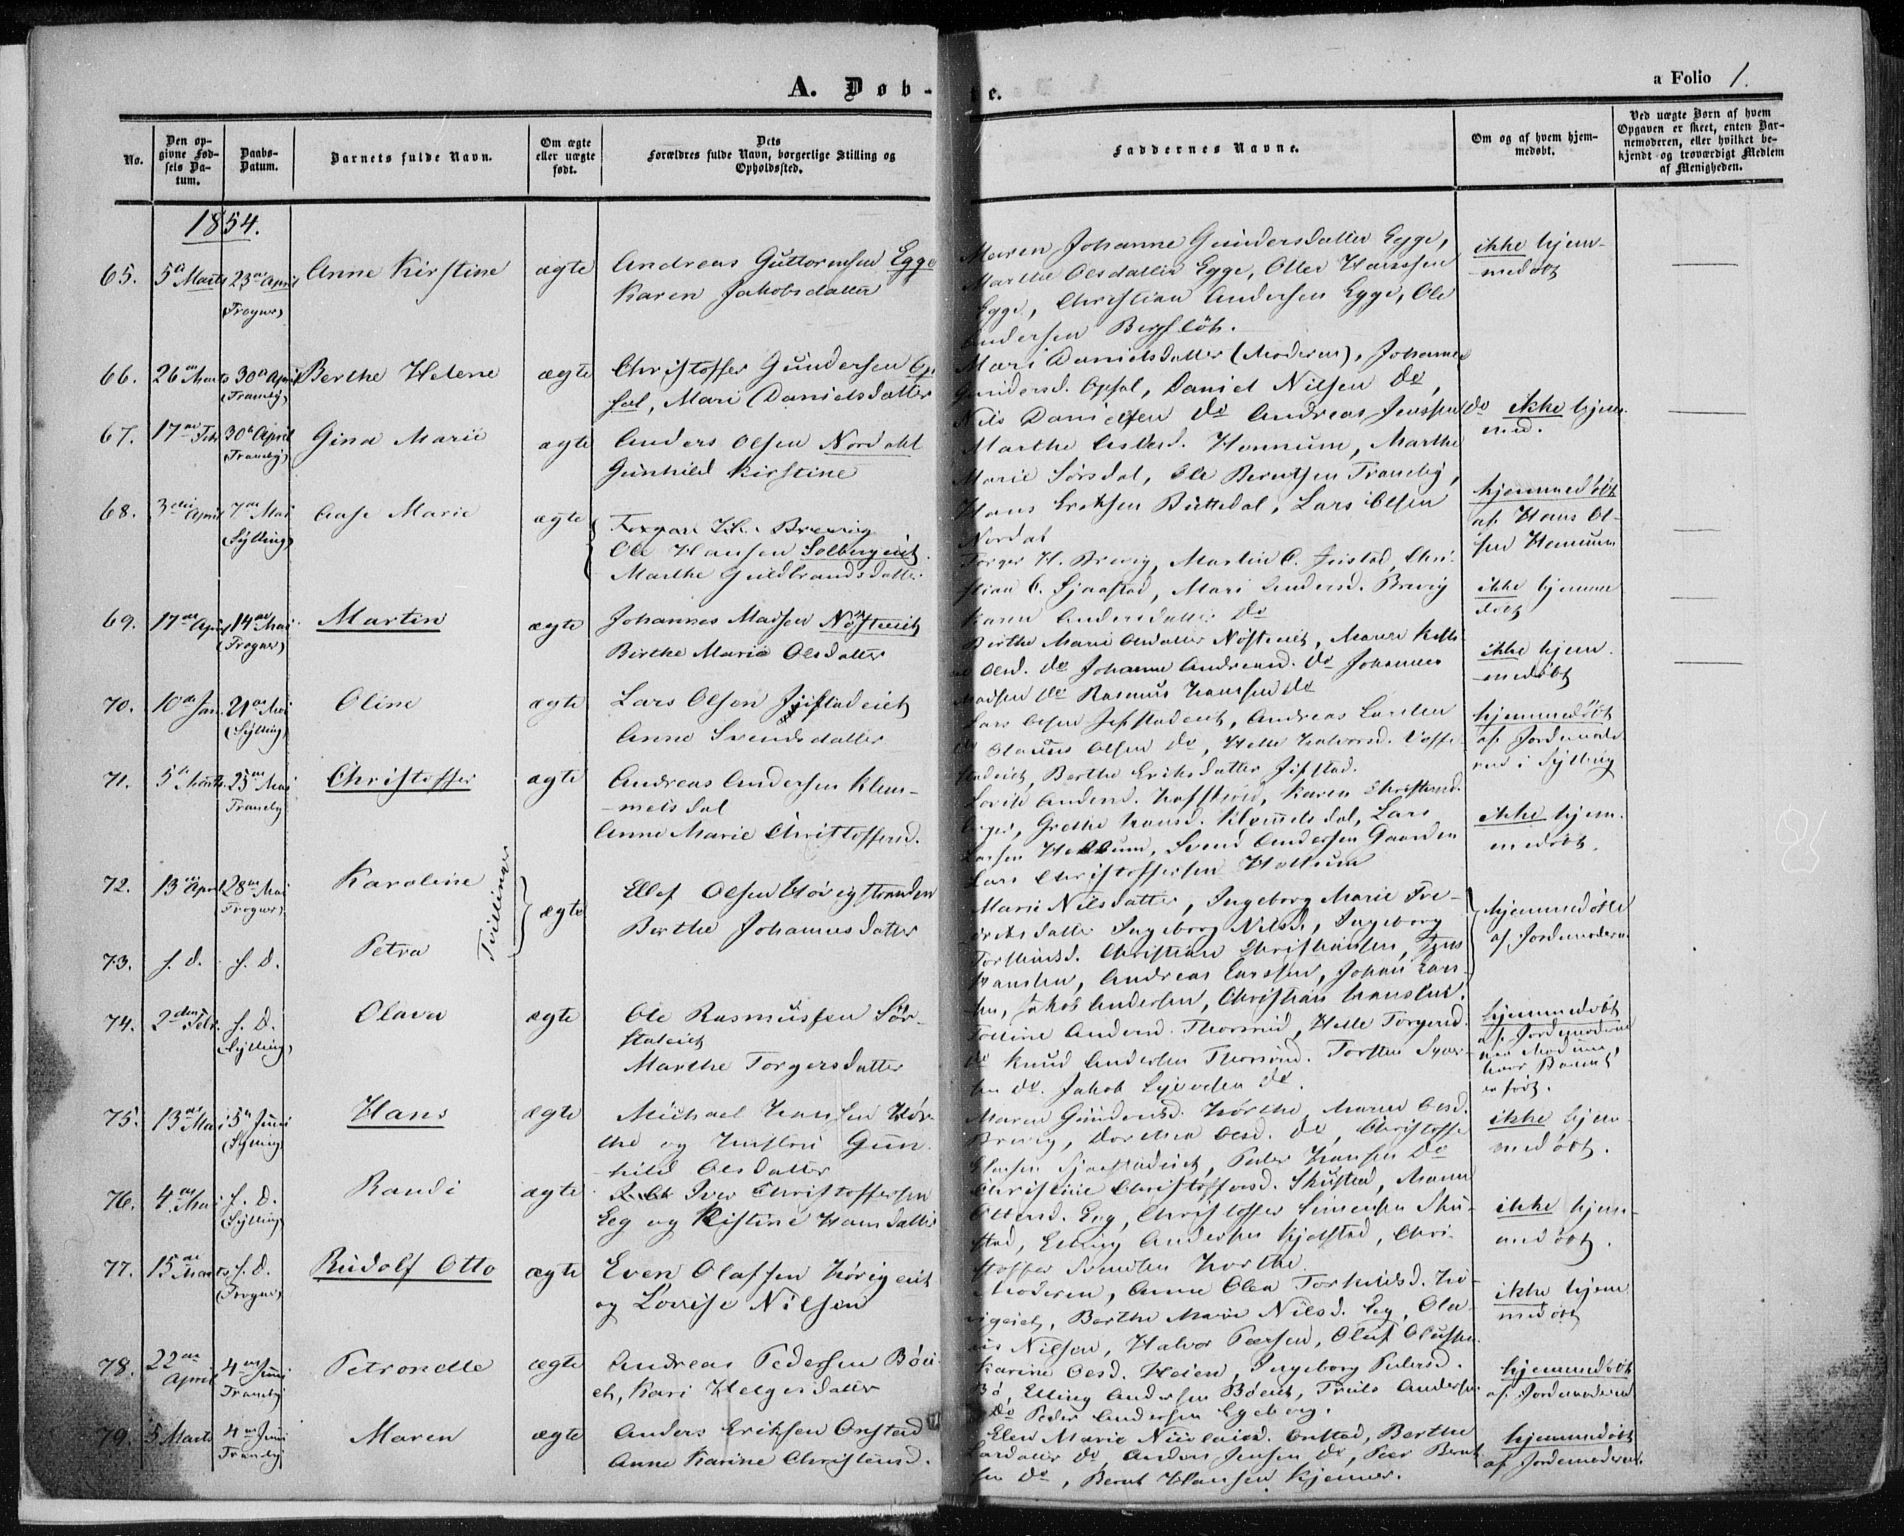 A. Døb-te.
a Folio 1.
No.
Den op-
givne Fød-
sels Da-
tum.
Daabs-
Datum.
Barnets fulde Navn.
Om ægte
eller uægte
født.
Dets
Forældres fulde Navn, borgerlige Stilling og
Opholdssted.
Faddernes Navne.
Om og af hvem hjem-
medøbt.
Ved uægte Børn af hvem
Opgaven er skeet, enten Bar-
nemoderen, eller hvilket be-
kjendt og troværdigt Medlem
af Menigheden.
1854.
65. 5te Marts 23de April (Frogner)
Anne Kirstine
ægte
Andreas Guttormsen Egge
Karen Jakobsdatter
Maren Johanne Gundersdatter Egge,
Marthe Olsdatter Egge, Otter Hanssen
Egge, Christian Andersen Egge, Ole
Andersen Bergfløt.
ikke hjem-
medøbt
66. 26de Marts 30te April (Tranby)
Berthe Helene
ægte
Christoffer Gundersen Op-
sal, Mari Danielsdatter
Mari Danielsdatter (Moderen), Johanne
Gundersd. Opsal, Daniel Nilsen do,
Nils Danielsen do Andreas Jenssen do
ikke hjem-
med.
67. 17de Febr 30te April (Tranby)
Gina Marie
ægte
Anders Olsen Nordahl
Gunhild Kirstine
Marthe Hennum, Marthe
Marie Sørsdal, Ole Berntsen Tranby,
Hans Eriksen Buttedal, Lars Olsen
Nordal
hjemmedøbt
af Hans Ol-
sen Hennum
68. 3die April 7de Mai (Sylling)
Aase Marie
ægte
Torger H. Brevig
Ole Hansen Solbergeiet.
Marthe Guldbrandsdatter
Torger H. Brevig, Martin C. Chri-
stian C. Sjaastad, Mari Andersd. Brevig
Karen Andersdatter do
ikke hjemme
døbt
69. 17de April 14de Mai (Frogner)
Martin
ægte
Johannes Madsen Nøsteeiet
Berthe Marie Olsdatter
Berthe Marie Olsdatter Nøsteeiet, Maren
Olsd. do Johanne Andreasd. do Johannes
Madsen do Rasmus Hanssen do
ikke hjem-
medøbt
70. 10de Jan. 21de Mai (Sylling)
Oline
ægte
Lars Olsen Jeistadeiet
Anne Svendsdatter
Lars Olsen Andreas Larsen
do Olaus Olsen do, Helle Halvorsd.
Berthe Eriksdatter
hjemmedøbt
af Jordemode-
ren i Sylling
71. 5te Marts 25de Mai Tranby
Christoffer
ægte
Andreas Andersen Klem-
metsdal
Anne Marie Christoffersd.
Andersd. Karen Christensd.
Grethe Hansd. Klemmetsdal, Lars
Larsen Hennum, Svend Andersen Gaarden
Lars Christoffersen Hennum
ikke hjem-
medøbt.
72. 13de April 28de Mai (Frogner)
Karoline
Tvillinger
ægte
Ellef Olsen Høvigstranden
Berthe Johannesdatter
Marie Nilsdatter, Ingeborg Marie Fre-
driksdatter Ingeborg Nilsd., Ingeborg
Torstensd. Christian Christiansen, Jens
Hansen, Andreas Larssen, Johan Lars-
sen, Jakob Andersen, Christian Hanssen.
hjemmedøbte
af Jordemoderen
73. s. D. s. D.
Petra
74. 2den Febr. s. D. (Sylling)
Olava
ægte
Ole Rasmussen Sør-
Marthe Torgersdatter
Andersd. Thorsrud, Helle Torgersd.
do Knud Andersen Thorsrud. Torsten Syver-
sen do. Jakob Syversen do.
hjemmedøbt
af Jordemoderen
paa Modum,
hvor Barnet
er født.
75. 13de Mai 5te Juni (Sylling)
Hans
ægte
Michael Hansen Hør-
the og Hustru Gun-
hild Olsdatter
Maren Gundersd. Hørthe, Maren Olsd.
Brevig, Dorthea Olsd. do, Christoffer
Sjaastadeiet, Peder Hansen do
ikke hjem-
medøbt.
76. 4de Mai s. D. (Sylling)
Randi
ægte
Iver Christoffersen
Eeg og Kistine Hansdatter
Christine Christoffersd. Skustad, Maren
Ottersd. Eeg, Christoffer Simensen Sku-
stad, Elling Andersen Kjølstad, Chri-
stoffer Svendsen Horthe.
ikke hjem-
medøbt.
77. 15de Marts s. D. (Frogner)
Rudolf Otto
ægte
Even Olafsen Høvigeiet
og Lovise Nilsen
Moderen, Anne Olea Torkildsd. Hø-
vigeiet, Berthe Marie Nilsd. Eeg, Ola-
us Nilsen, Halvor Olaf Olafsen
ikke hjem
medøbt
78. 22de April 4de Juni Tranby
Petronelle
ægte
Andreas Pedersen Bøei-
et, Kari Helgesdatter
Karine Olsd. Heien, Ingeborg Pedersd.
Bø, Elling Andersen Bøeiet, Truls Andersen
do Peder Andersen Egeberg.
hjemmedøbt
af Jordemoderen
79. 5 Marts 4de Juni Tranby
Maren
ægte
Anders Eriksen Onstad
Anne Karine Christensd.
Elen Marie Nicolaisd. Onstad, Berthe
Larsdatter do, Anders Jensen do, Peer Bernt-
sen do, Bernt Hansen Kjenner.
hjemmedøbt
af Jordemoderen.